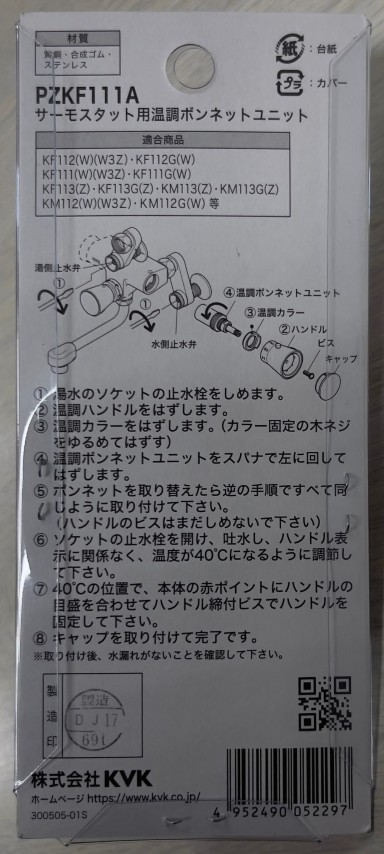 材質
黄銅・合成ゴム・
ステンレス
紙：台紙
プラ：カバー
PZKF111A
サーモスタット用温調ボンネットユニット
適合商品
KF112(W)(W3Z)・KF112G(W)
KF111(W)(W3Z)・KF111G(W)
KF113(Z)・KF113G(Z)・KM113(Z)・KM113G(Z)
KM112(W)(W3Z)・KM112G(W) 等
湯側止水弁
①
①
水側止水弁
④温調ボンネットユニット
③温調カラー
②ハンドル
ビス
キャップ
① 湯水のソケットの止水栓をしめます。
② 温調ハンドルをはずします。
③ 温調カラーをはずします。（カラー固定の木ネジ
をゆるめてはずす）
④ 温調ボンネットユニットをスパナで左に回して
はずします。
⑤ ボンネットを取り替えたら逆の手順ですべて同
じように取り付けて下さい。
（ハンドルのビスはまだしめないで下さい）
⑥ ソケットの止水栓を開け、吐水し、ハンドル表
示に関係なく、温度が40℃になるように調節し
て下さい。
⑦ 40℃の位置で、本体の赤ポイントにハンドルの
目盛を合わせてハンドル締付ビスでハンドルを
固定して下さい。
⑧ キャップを取り付けて完了です。
※取り付け後、水漏れがないことを確認して下さい。
製造印
製造
D J 17
691
株式会社KVK
ホームページ https://www.kvk.co.jp/
300505-01S
4 952490 052297